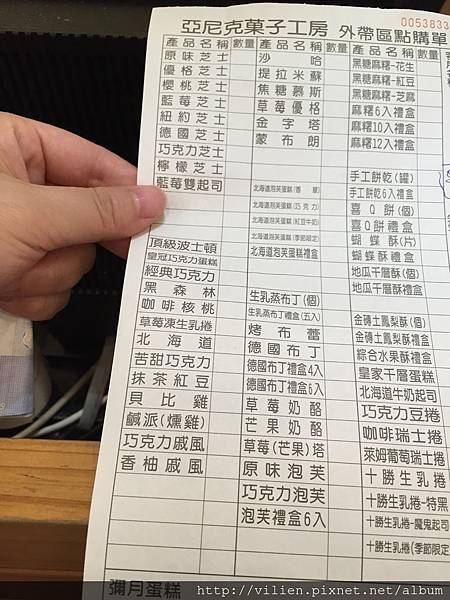 亞尼克菓子工房 外帶區點購單
0053833
產品名稱 數量 產品名稱 數量 產品名稱
原味芝士
優格芝士
櫻桃芝士
藍莓芝士
紐約芝士
德國芝士
巧克力芝士
檸檬芝士
藍莓雙起司
頂級波士頓
皇冠巧克力蛋糕
經典巧克力
黑森林
咖啡核桃
草莓凍生乳捲
北海道
苦甜巧克力
抹茶紅豆
貝比雞
鹹派(燻雞)
巧克力戚風
香柚戚風
彌月蛋糕
沙哈
提拉米蘇
焦糖慕斯
草莓優格
金字塔
蒙布朗
北海道泡芙蛋糕(香草)
北海道泡芙蛋糕(巧克力)
北海道泡芙蛋糕(紅豆牛奶)
北海道泡芙蛋糕(季節限定)
北海道泡芙蛋糕禮盒
生乳蒸布丁(個)
生乳蒸布丁禮盒(五入)
烤布蕾
德國布丁
德國布丁禮盒4入
德國布丁禮盒6入
草莓奶酪
芒果奶酪
草莓(芒果)塔
原味泡芙
巧克力泡芙
泡芙禮盒6入
黑糖麻糬-花生
黑糖麻糬-紅豆
黑糖麻糬-芝麻
麻糬6入禮盒
麻糬10入禮盒
麻糬12入禮盒
手工餅乾(罐)
手工餅乾6入禮盒
喜Q餅(個)
喜Q餅禮盒
蝴蝶酥(片)
蝴蝶酥禮盒
地瓜千層酥(個)
地瓜千層酥禮盒
金磚土鳳梨酥(個)
金磚土鳳梨酥禮盒
綜合水果酥禮盒
皇家千層蛋糕
北海道牛奶起司
巧克力豆捲
咖啡瑞士捲
萊姆葡萄瑞士捲
十勝生乳捲
十勝生乳捲-特黑
十勝生乳捲-魔鬼起司
十勝生乳捲(季節限定)
http://vilien.pixnet.net/album